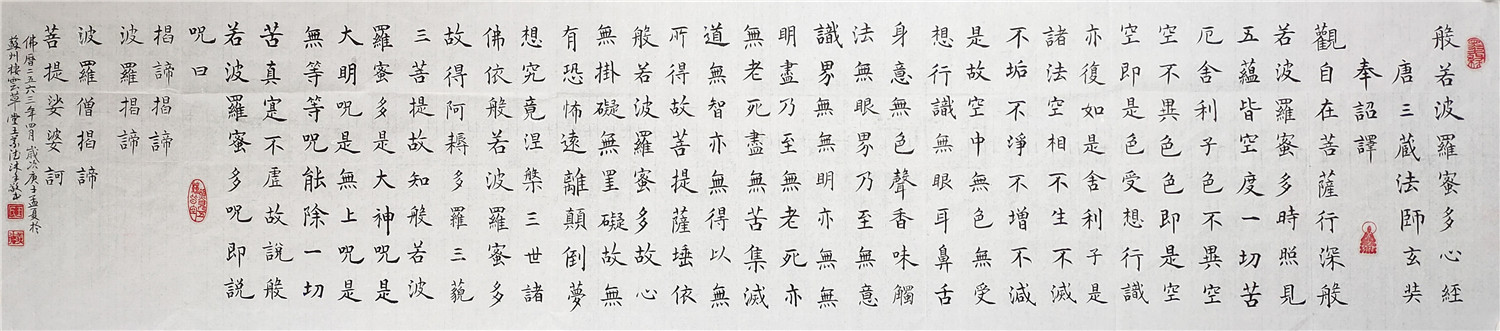 般若波羅蜜多心經
唐三藏法師玄奘
奉詔譯
觀自在菩薩行深般
若波羅蜜多時照見
五蘊皆空度一切苦
厄舍利子色不異空
空不異色色即是空
空即是色受想行識
亦復如是舍利子是
諸法空相不生不滅
不垢不淨不增不減
是故空中無色無受
想行識無眼耳鼻舌
身意無色聲香味觸
法無眼界乃至無意
識界無無明亦無無
明盡乃至無老死亦
無老死盡無苦集滅
道無智亦無得以無
所得故菩提薩埵依
般若波羅蜜多故心
無掛礙無罣礙故無
有恐怖遠離顛倒夢
想究竟涅槃三世諸
佛依般若波羅蜜多
故得阿耨多羅三藐
三菩提故知般若波
羅蜜多是大神呪是
大明呪是無上呪是
無等等呪能除一切
苦真寔不虛故說般
若波羅蜜多呪即說
呪曰
揭諦揭諦
波羅揭諦
波羅僧揭諦
菩提娑婆訶
佛曆二五六三年四月歲次庚子孟夏於
蘇州棲雲草堂王景沐手